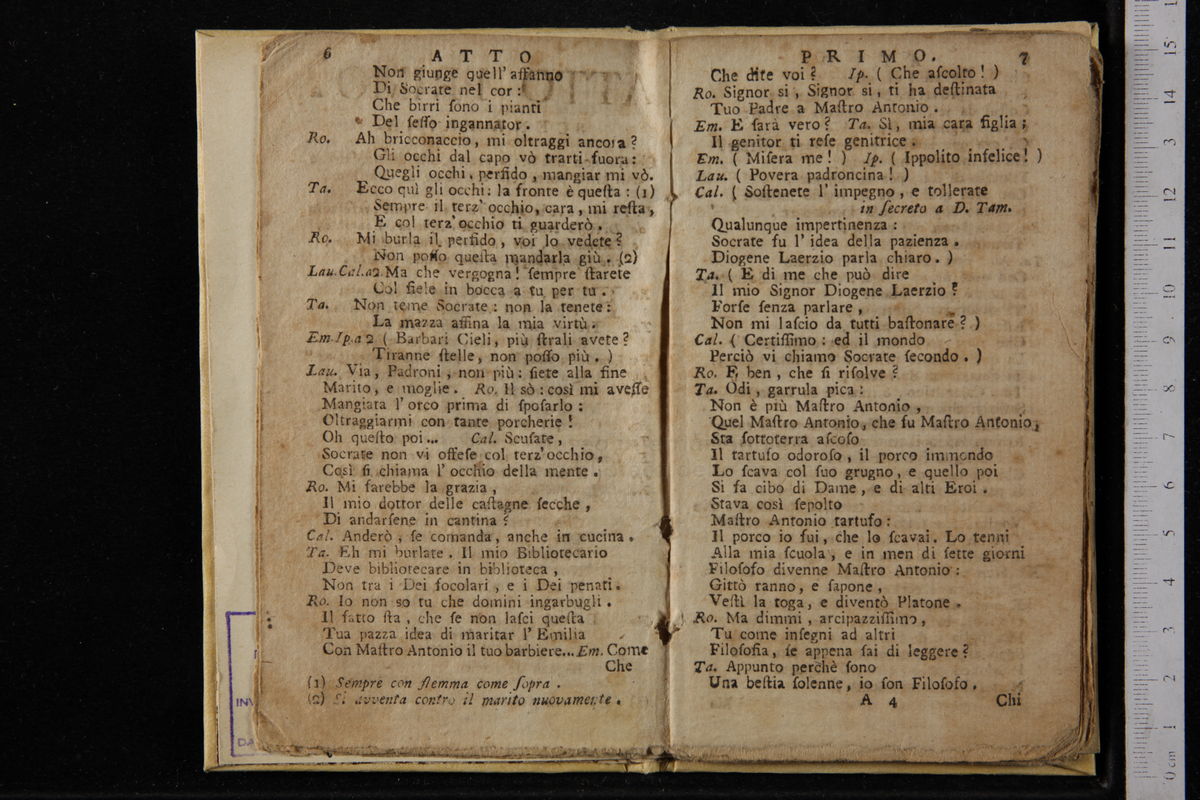 6 ATTO
Non giunge quell' affanno
Di Socrate nel cor:
Che birri ſono i pianti
Del ſeſſo ingannator.
Ro. Ah bricconaccio, mi oltraggi ancora?
Gli occhi dal capo vò trarti fuora:
Quegli occhi, perfido, mangiar mi vò.
Ta. Ecco quì gli occhi: la fronte è queſta: (1)
Sempre il terz' occhio, cara, mi reſta,
E col terz' occhio ti guarderò.
Ro. Mi burla il perfido, voi lo vedete?
Non poſſo queſta mandarla giù. (2)
Lau.Cal.a2 Ma che vergogna! ſempre ſtarete
Col fiele in bocca a tu per tu.
Ta. Non teme Socrate: non la tenete:
La mazza affina la mia virtù.
Em.Ip.a 2 ( Barbari Cieli, più ſtrali avete?
Tiranne ſtelle, non poſſo più. )
Lau. Via, Padroni, non più: ſiete alla fine
Marito, e moglie. Ro. Il sò: così mi aveſſe
Mangiata l' orco prima di ſpoſarlo:
Oltraggiarmi con tante porcherie!
Oh queſto poi... Cal. Scuſate,
Socrate non vi offeſe col terz' occhio,
Così ſi chiama l' occhio della mente.
Ro. Mi farebbe la grazia,
Il mio dottor delle caſtagne ſecche,
Di andarſene in cantina?
Cal. Anderò, ſe comanda, anche in cucina.
Ta. Eh mi burlate. Il mio Bibliotecario
Deve bibliotecare in biblioteca,
Non tra i Dei focolari, e i Dei penati.
Ro. Io non so tu che domini ingarbugli.
Il fatto ſta, che ſe non laſci queſta
Tua pazza idea di maritar l' Emilia
Con Maſtro Antonio il tuo barbiere... Em. Come
Che
(1) Sempre con flemma come ſopra.
(2) Si avventa contro il marito nuovamente.
PRIMO. 7
Che dite voi? Ip. ( Che aſcolto! )
Ro. Signor si, Signor si, ti ha deſtinata
Tuo Padre a Maſtro Antonio.
Em. E ſarà vero? Ta. Sì, mia cara figlia;
Il genitor ti reſe genitrice.
Em. ( Miſera me! ) Ip. ( Ippolito infelice! )
Lau. ( Povera padroncina! )
Cal. ( Soſtenete l' impegno, e tollerate
in ſecreto a D. Tam.
Qualunque impertinenza:
Socrate fu l' idea della pazienza.
Diogene Laerzio parla chiaro. )
Ta. ( E di me che può dire
Il mio Signor Diogene Laerzio?
Forſe ſenza parlare,
Non mi laſcio da tutti baſtonare? )
Cal. ( Certiſſimo: ed il mondo
Perciò vi chiama Socrate ſecondo. )
Ro. E ben, che ſi riſolve?
Ta. Odi, garrula pica:
Non è più Maſtro Antonio,
Quel Maſtro Antonio, che fu Maſtro Antonio,
Sta ſottoterra aſcoſo
Il tartufo odoroſo, il porco immondo
Lo ſcava col ſuo grugno, e quello poi
Si fa cibo di Dame, e di alti Eroi.
Stava così ſepolto
Maſtro Antonio tartufo:
Il porco io fui, che lo ſcavai. Lo tenni
Alla mia ſcuola, e in men di ſette giorni
Filoſofo divenne Maſtro Antonio:
Gittò ranno, e ſapone,
Veſtì la toga, e diventò Platone.
Ro. Ma dimmi, arcipazziſſimo,
Tu come inſegni ad altri
Filoſofia, ſe appena ſai di leggere?
Ta. Appunto perchè ſono
Una beſtia ſolenne, io ſon Filoſofo.
A 4 Chi